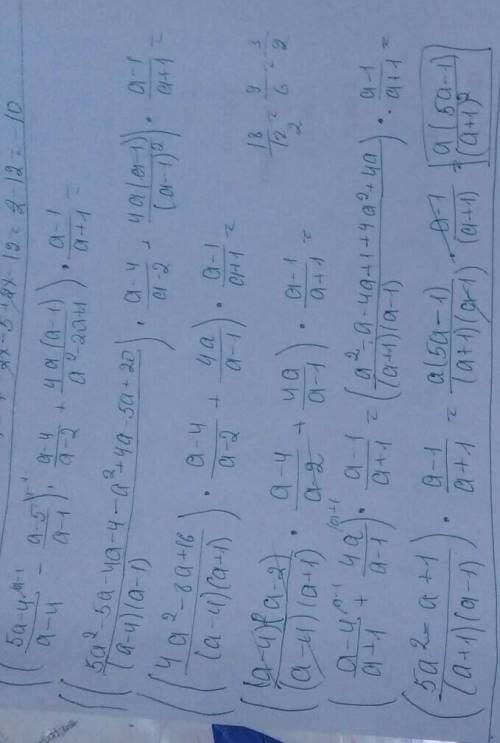 2x - 5 + 8x - 12 = 2 - 12 = -10
((5a-4^{\a-1}/(a-4) - (a-5)^{\a-4}/(a-1)) · (a-4)/(a-2) + 4a(a-1)/(a²-2a+1)) · (a-1)/(a+1) =
((5a²-5a-4a-4-a²+4a-5a+20)/((a-4)(a-1)) · (a-4)/(a-2) + 4a(a-1)/(a-1)²) · (a-1)/(a+1) =
((4a²-8a+16)/((a-4)(a+1)) · (a-4)/(a-2) + 4a/(a-1)) · (a-1)/(a+1) =
18/12 = 9/6 = 3/2
((a-4)(a-2)/((a-4)(a+1)) · (a-4)/(a-2) + 4a/(a-1)) · (a-1)/(a+1) =
((a-4^{\a-1}/(a+1) + 4a^{\a+1}/(a-1)) · (a-1)/(a+1) = ((a²-a-4a+1+4a²+4a)/((a+1)(a-1))) · (a-1)/(a+1) =
((5a²-a+1)/((a+1)(a-1))) · (a-1)/(a+1) = a(5a-1)/((a+1)(a-1)) · (a-1)/(a+1) = a(5a-1)/(a+1)²